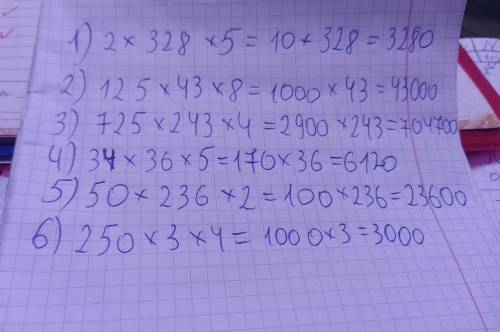 1) 2 × 328 × 5 = 10 × 328 = 3280
2) 125 × 43 × 8 = 1000 × 43 = 43000
3) 725 × 243 × 4 = 2900 × 243 = 704700
4) 34 × 36 × 5 = 170 × 36 = 6120
5) 50 × 236 × 2 = 100 × 236 = 23600
6) 250 × 3 × 4 = 1000 × 3 = 3000